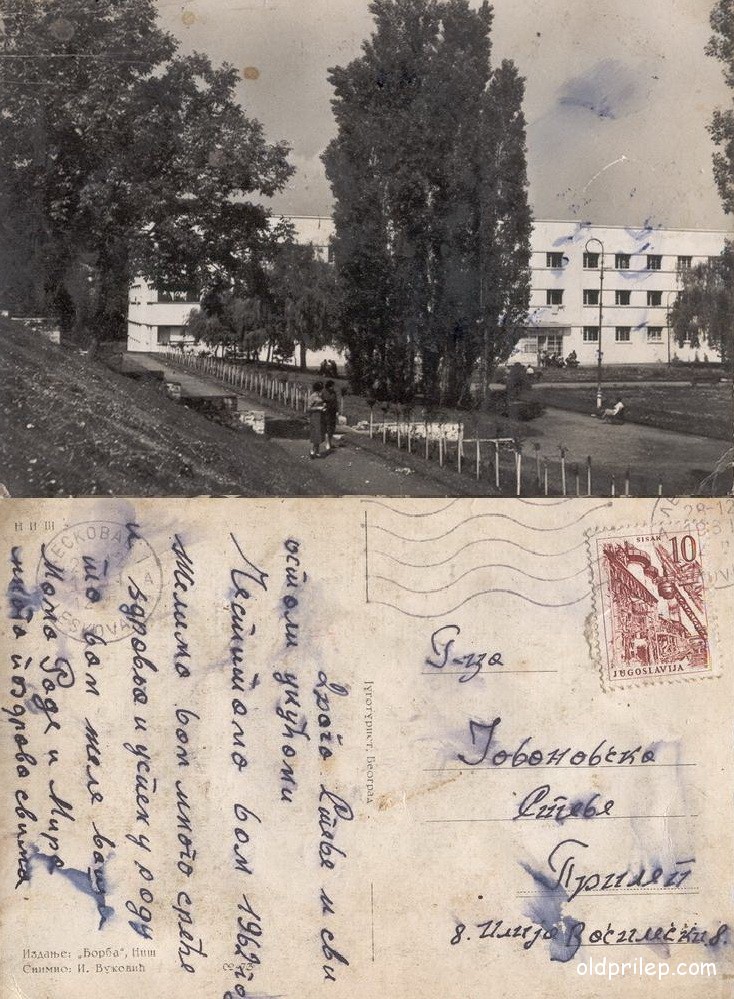 НИШ
ЛЕСКОВАЦ
LESKOVAC
Драга Стеве и сви
остали укућани
Честитамо вам 1962 го
желимо вам много среће
и здравља и успех у раду
то вам желе ваша
мама Раде и Мира
много поздрава свима.
Издање: „Борба“, Ниш
Снимио: И. Вуковић
Југотурист, Београд
28-12
SISAK 10
JUGOSLAVIJA
Г-ца
Јовановска
Стеве
Прилеп
8. Илија Василески 8.
oldprilep.com